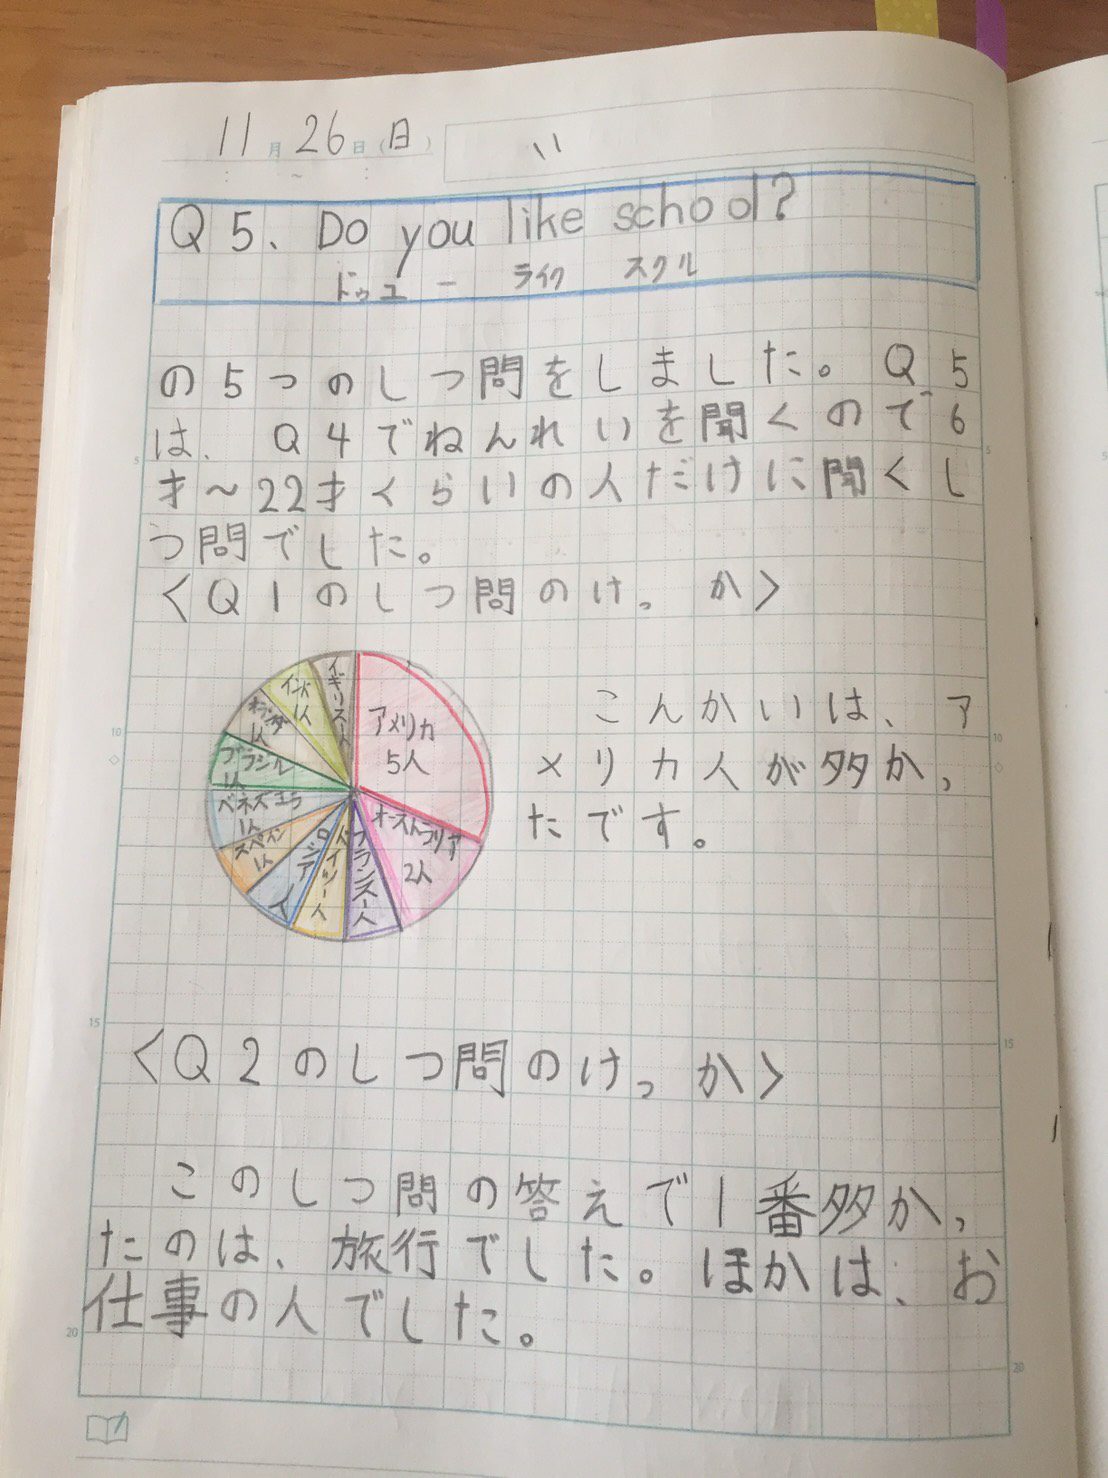 11月26日(日)
Q5、Do you like school?
ドゥユー ライク スクル
の5つのしつ問をしました。Q5
は、Q4でねんれいを聞くので6
才～22才くらいの人だけに聞くし
つ問でした。
<Q1のしつ問のけっか>
アメリカ
5人
オーストラリア
2人
フランス一人
ドイツ一人
ロシア
一人
スペイン
1人
ベネズエラ
1人
ブラジル
1人
オランダ
1人
インド
1人
イギリス一人
こんかいは、ア
メリカ人が多かっ
たです。
<Q2のしつ問のけっか>
このしつ問の答えで1番多かっ
たのは、旅行でした。ほかは、お
仕事の人でした。
5
10
15
20
5
10
15
20